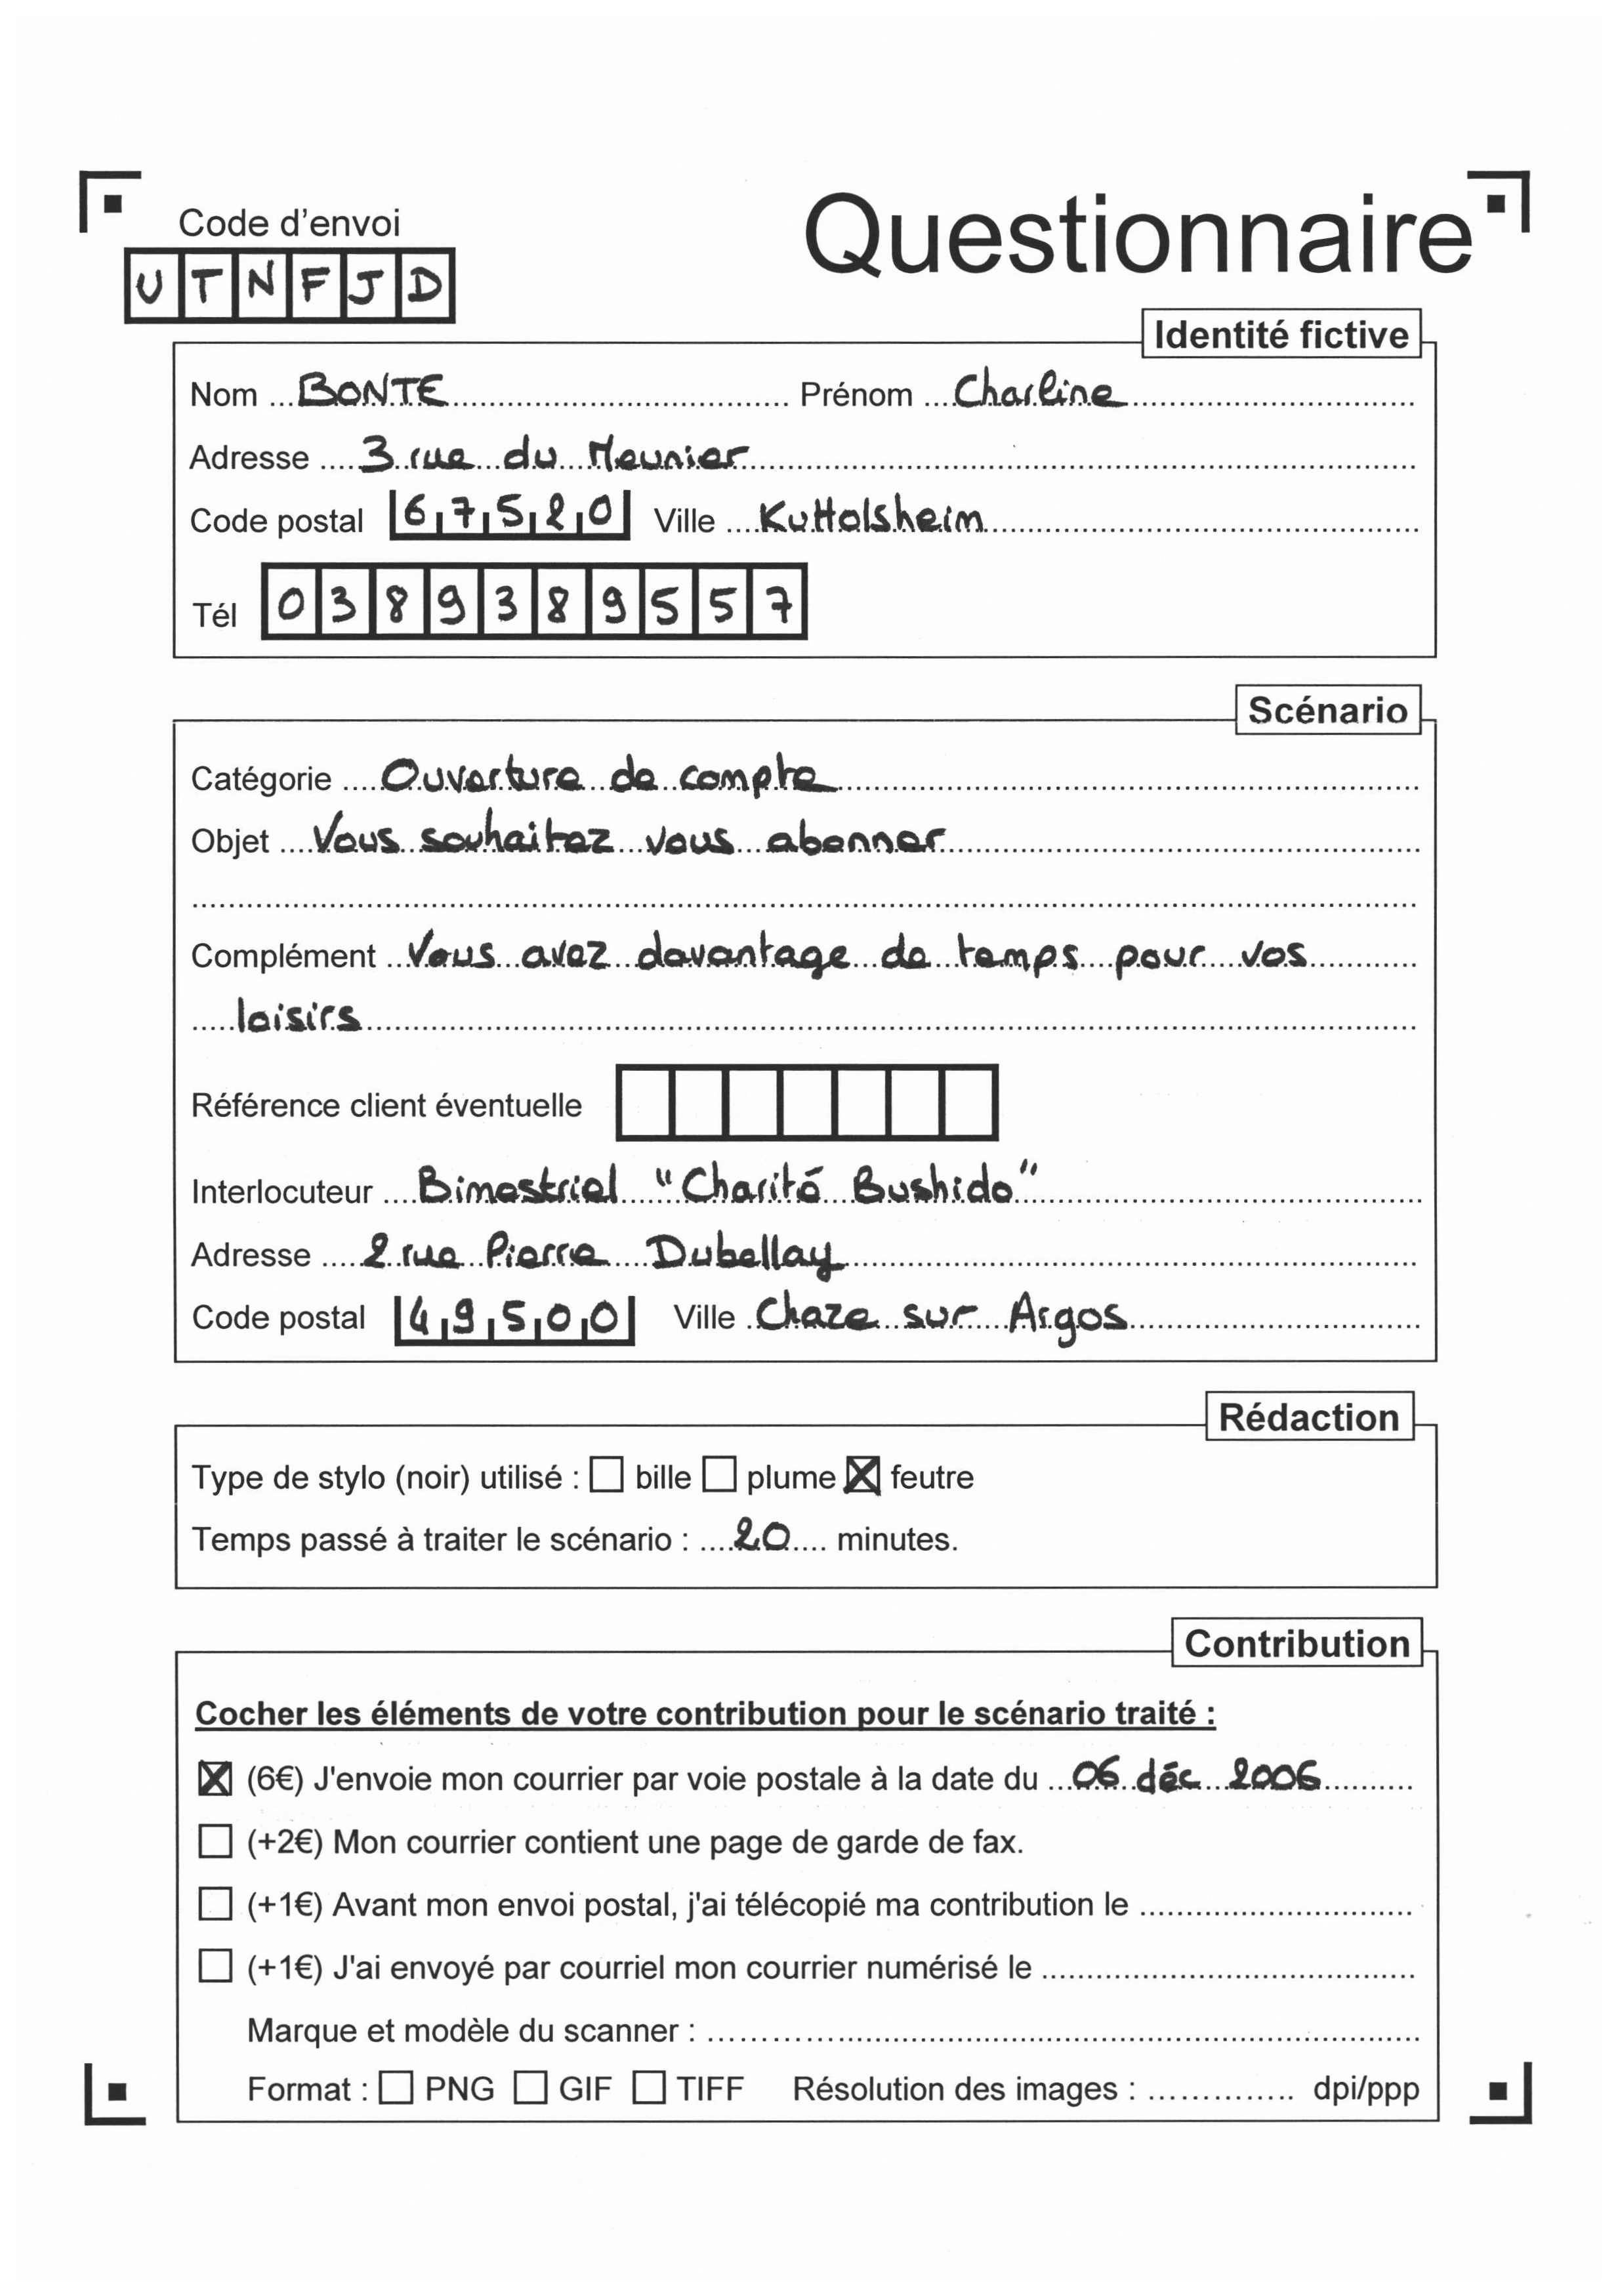 Code d'envoi
Questionnaire
UTNFJD
Identité fictive
Nom BONTE Prénom Charline
Adresse 3 rue du Meunier
Code postal 67520 Ville Kuttolsheim
Tél 0389389557
Scénario
Catégorie Ouverture de compte
Objet Vous souhaitez vous abonner
Complément Vous avez davantage de temps pour vos
loisirs
Référence client éventuelle
Interlocuteur Bimestriel "Charité Bushido"
Adresse 2 rue Pierre Dubellay
Code postal 49500 Ville Chaze sur Argos
Rédaction
Type de stylo (noir) utilisé : ☐ bille ☐ plume ☒ feutre
Temps passé à traiter le scénario : 20 minutes.
Contribution
Cocher les éléments de votre contribution pour le scénario traité :
☒ (6€) J'envoie mon courrier par voie postale à la date du 06 déc 2006
☐ (+2€) Mon courrier contient une page de garde de fax.
☐ (+1€) Avant mon envoi postal, j'ai télécopié ma contribution le
☐ (+1€) J'ai envoyé par courriel mon courrier numérisé le
Marque et modèle du scanner :
Format : ☐ PNG ☐ GIF ☐ TIFF Résolution des images : dpi/ppp